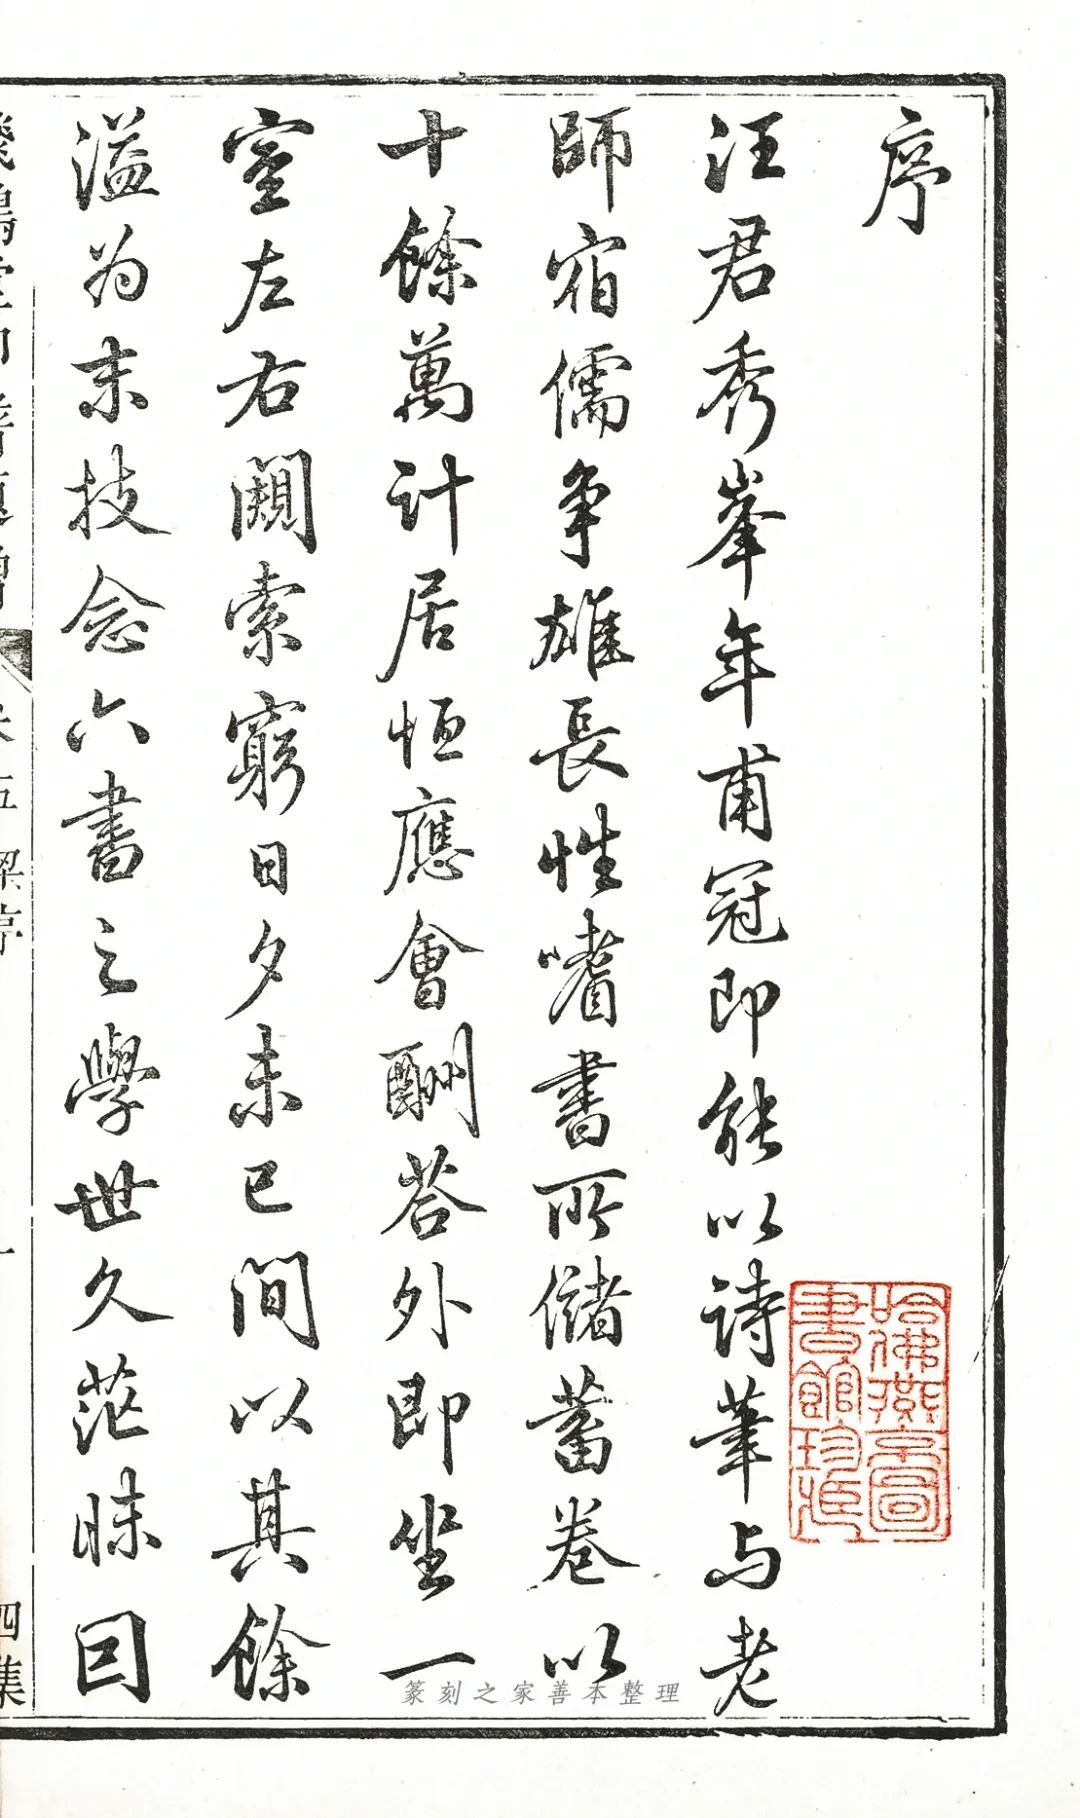 序
汪君秀峯年甫冠即能以詩筆與老
師宿儒爭雄長性嗜書所儲蓄卷以
十餘萬計居恒應會酬荅外即坐一
室左右闚索窮日夕未已間以其餘
溢為末技念六書之學世久茫昧因
飛鴻堂印譜
五 梁序
一
四集
哈佛燕京圖書館珍藏
篆刻之家善本整理